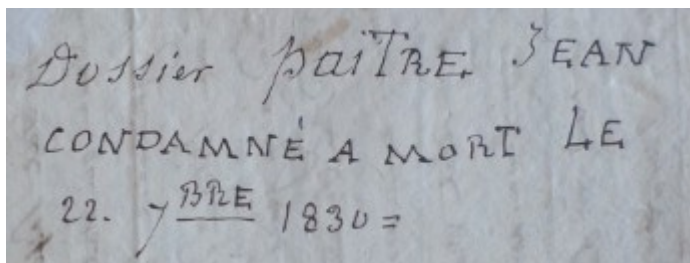 Dossier PAITRE JEAN
CONDAMNÉ A MORT LE
22. 7BRE 1830=